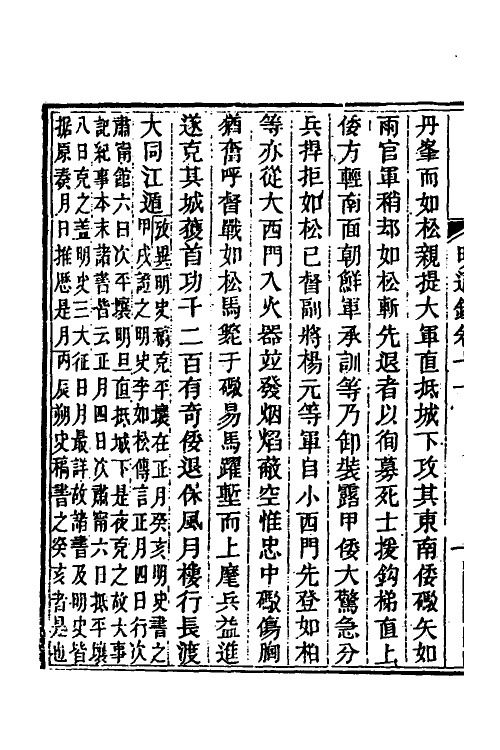 丹峯而如松親提大軍直抵城下攻其東南倭礮矢如
雨官軍稍却如松斬先退者以徇募死士援鈎梯直上
倭方輕南面朝鮮軍承訓等乃卸裝露甲倭大驚急分
兵捍拒如松已督副將楊元等軍自小西門先登如柏
等亦從大西門入火器並發烟焰蔽空惟忠中礮傷胸
猶奮呼督戰如松馬斃于礮易馬躍塹而上麾兵益進
遂克其城獲首功千二百有奇倭退保風月樓行長渡
大同江遁
攷異明史稿克平壤在正月癸亥明史書之
甲戌證之明史李如松傳言正月四日行次
肅甯館六日次平壤明旦直抵城下是夜克之故大事
記紀事本末諸書皆云正月四日次肅甯六日抵平壤
八日克之蓋明史三大征日月最詳故諸書及明史皆
据原奏月日推歷是月丙辰朔史稿書之癸亥者是也